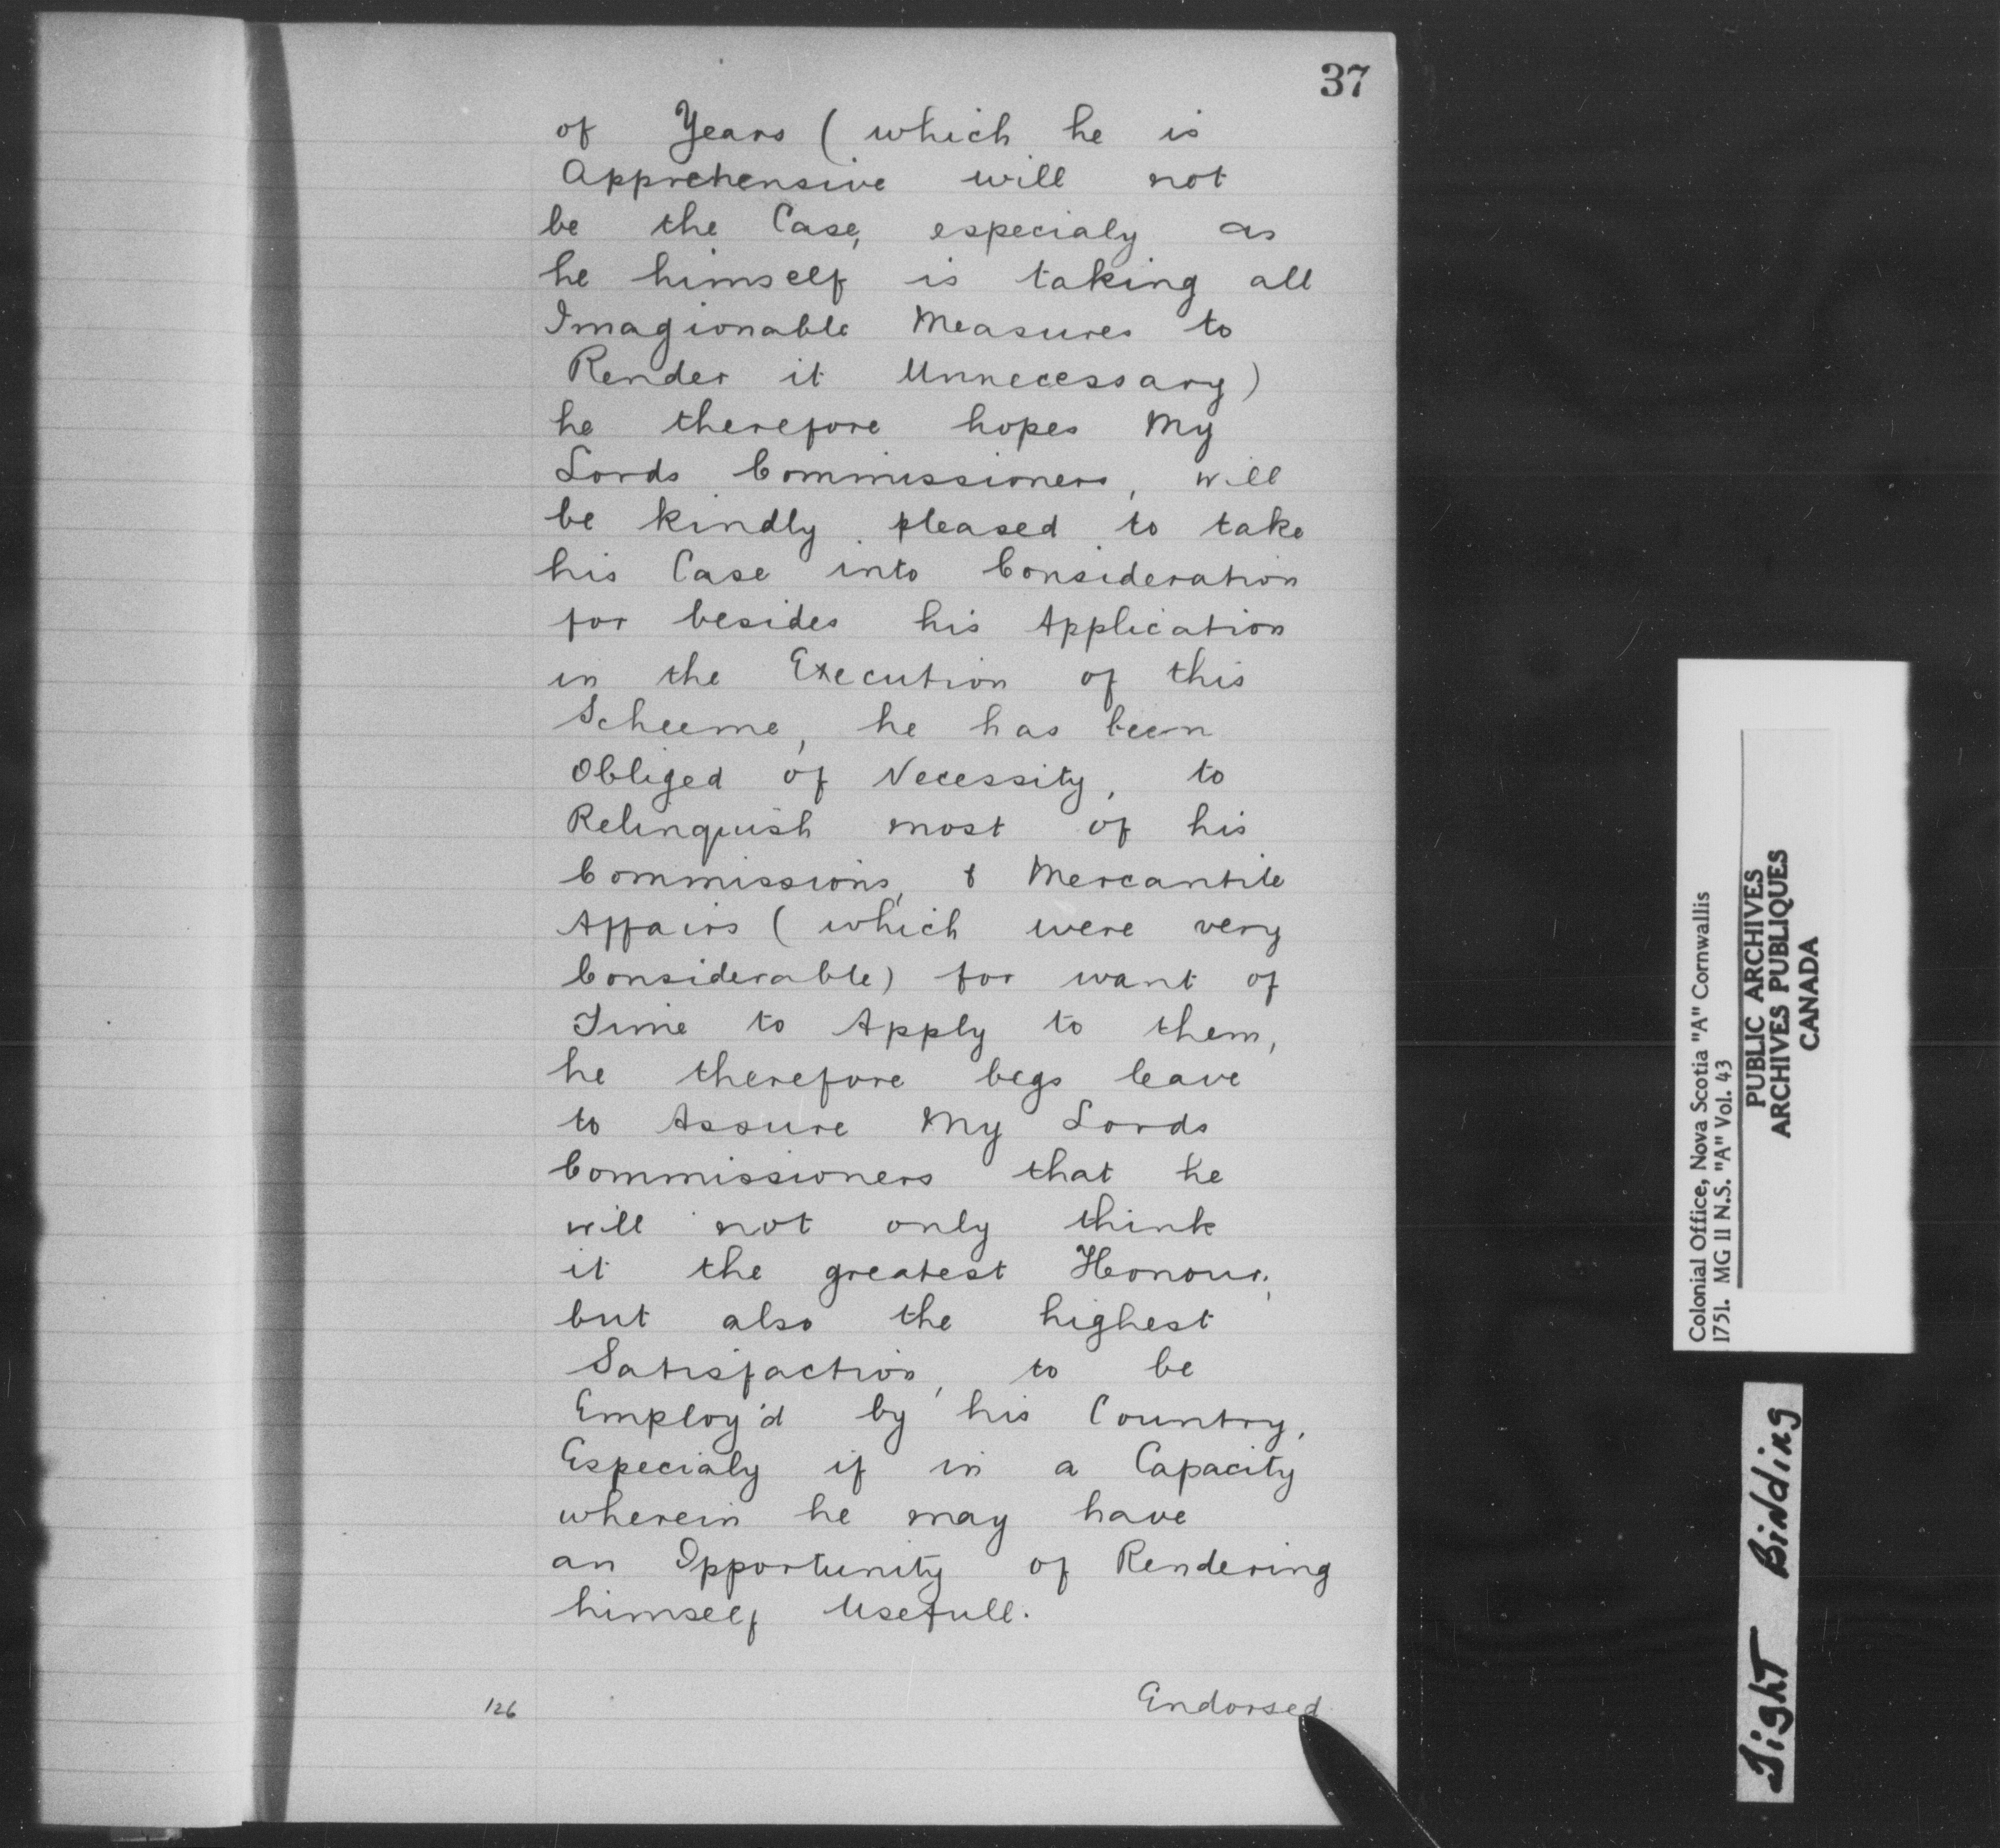 37
of Years ( which he is
Apprehensive will not
be the Case, especialy as
he himself is taking all
Imagionable Measures to
Render it Unnecessary)
he therefore hopes My
Lords Commissioners, will
be kindly pleased to take
his Case into Consideration
for besides his Application
in the Execution of this
Scheeme, he has been
Obliged of Necessity, to
Relinquish most of his
Commissions, & Mercantile
Affairs ( which were very
Considerable) for want of
Time to Apply to them,
he therefore begs leave
to Assure My Lords
Commissioners that he
will not only think
it the greatest Honour,
but also the highest
Satisfaction, to be
Employ'd by his Country,
Especialy if in a Capacity
wherein he may have
an Opportunity of Rendering
himself Usefull.
Endorsed
126
Colonial Office, Nova Scotia "A" Cornwallis
1751. MG 11 N.S. "A" Vol. 43
PUBLIC ARCHIVES
ARCHIVES PUBLIQUES
CANADA
Tight Binding